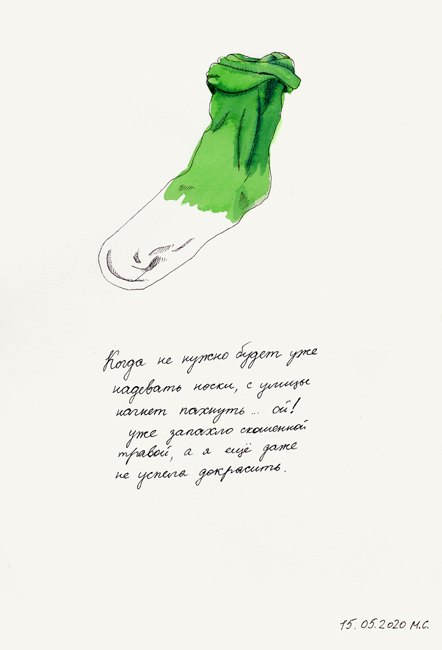 Когда не нужно будет уже
надевать носки, с улицы
начнет пахнуть... ой!
уже запахло скошенной
травой, а я ещё даже
не успела докрасить.
15.05.2020 М.С.